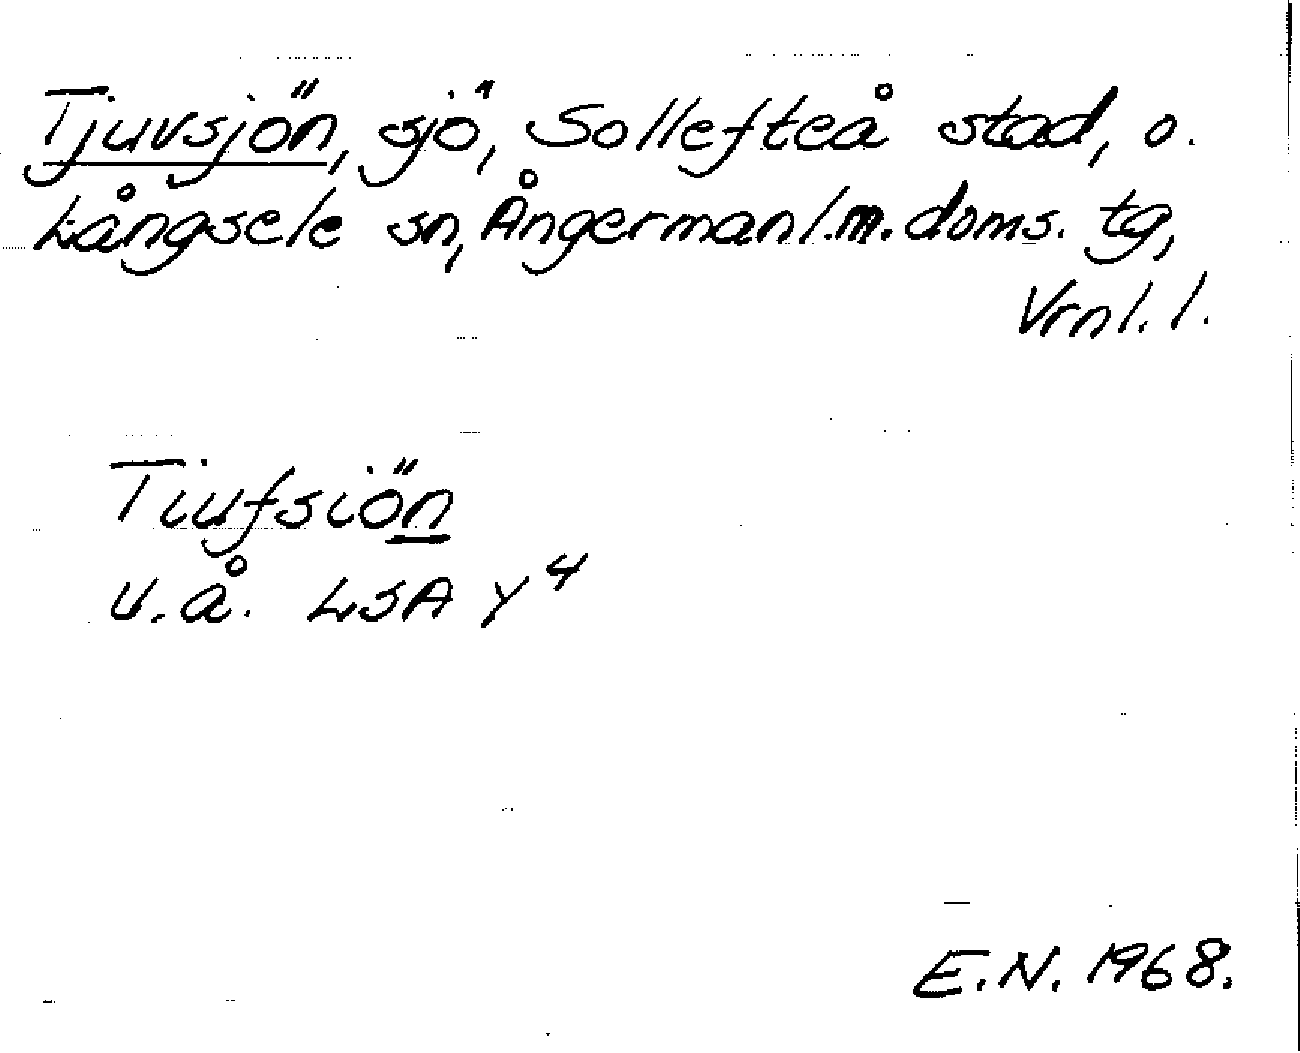 Tjuvsjön, sjö, Sollefteå stad, o.
Långsele sn, Ångermanl.m. doms. tg,
Vrnl. l.
Tiufsiön
u.å. LSA Y 4
E.N. 1968.